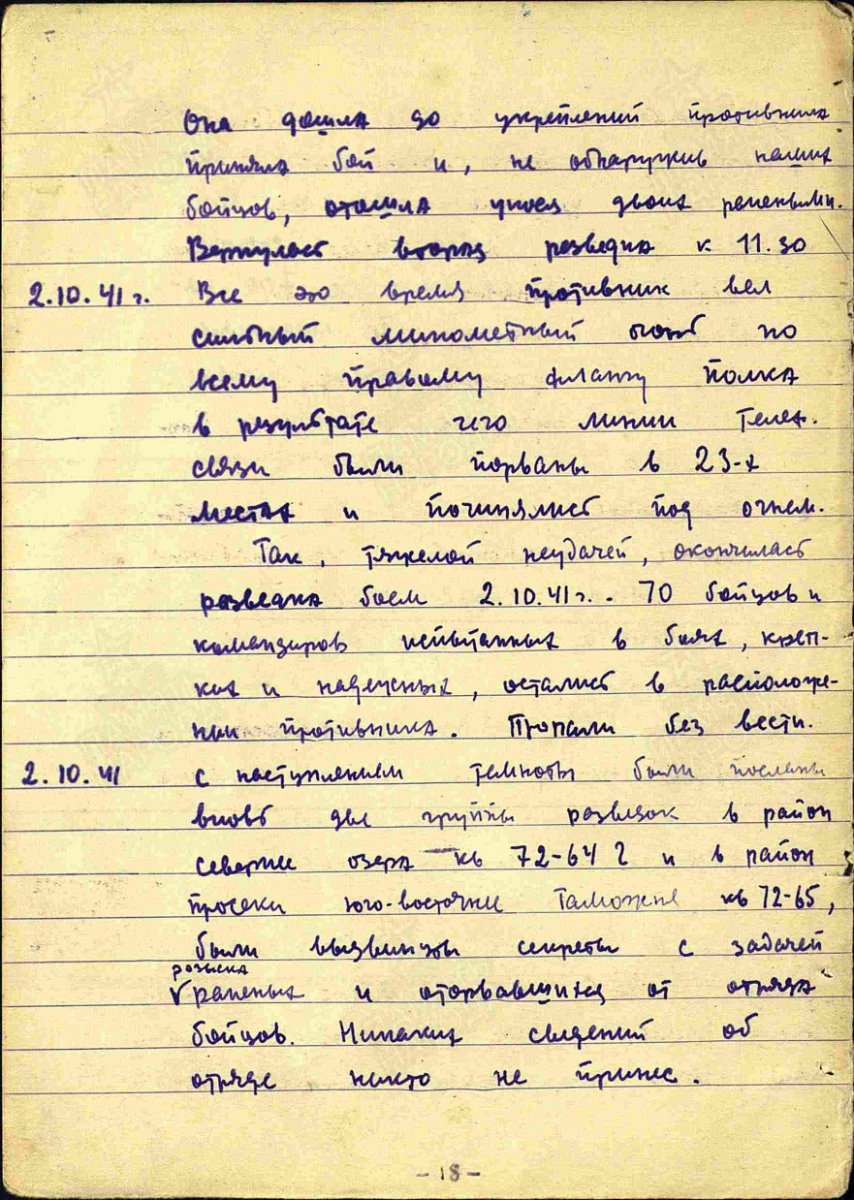 Она дошла до укреплений противника
приняла бой и, не обнаружив наших
бойцов, отошла унося двоих ранеными.
Вернулась вторая разведка к 11.30
2.10.41 г. Все это время противник вел
сильный минометный огонь по
всему правому флангу полка
в результате чего линии телеф.
связи были порваны в 23-х
местах и починялись под огнем.
Так, тяжелой неудачей, окончилась
разведка боем 2.10.41 г. - 70 бойцов и
командиров испытанных в боях, креп-
ких и надежных, остались в расположе-
нии противника. Пропали без вести.
2.10.41 с наступлением темноты были посланы
вновь две группы разведок в район
севернее озера кв 72-64 г и в район
просеки юго-восточнее Таможня кв 72-65,
были выдвинуты секреты с задачей
розыска
V раненых и оторвавшихся от отряда
бойцов. Никаких сведений об
отряде никто не принес.
- 18 -